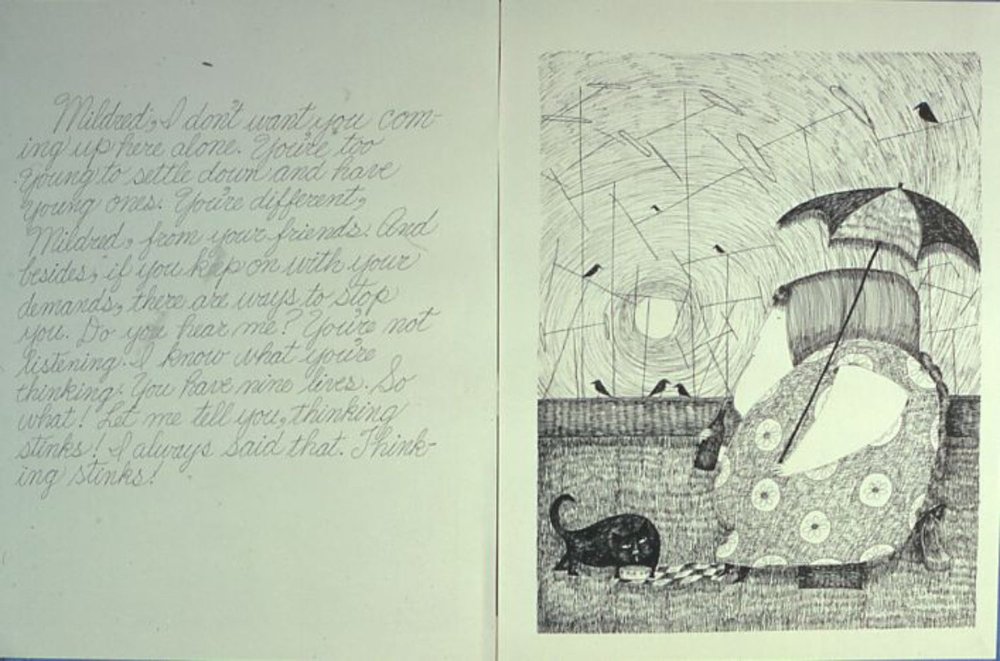 Mildred, I don't want you com-
ing up here alone. You're too
young to settle down and have
young ones. You're different,
Mildred, from your friends. And
besides, if you keep on with your
demands, there are ways to stop
you. Do you hear me? You're not
listening. I know what you're
thinking. You have nine lives. So
what! Let me tell you, thinking
stinks! I always said that. Think-
ing stinks!